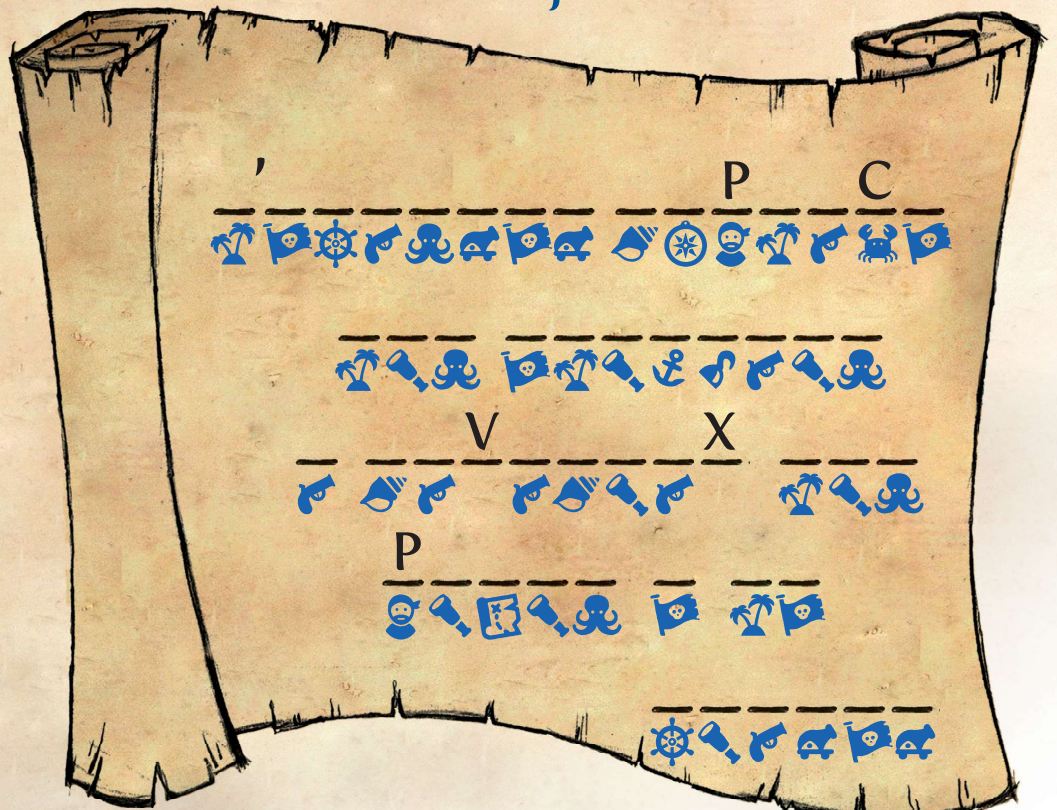 ’ P C
V X
P